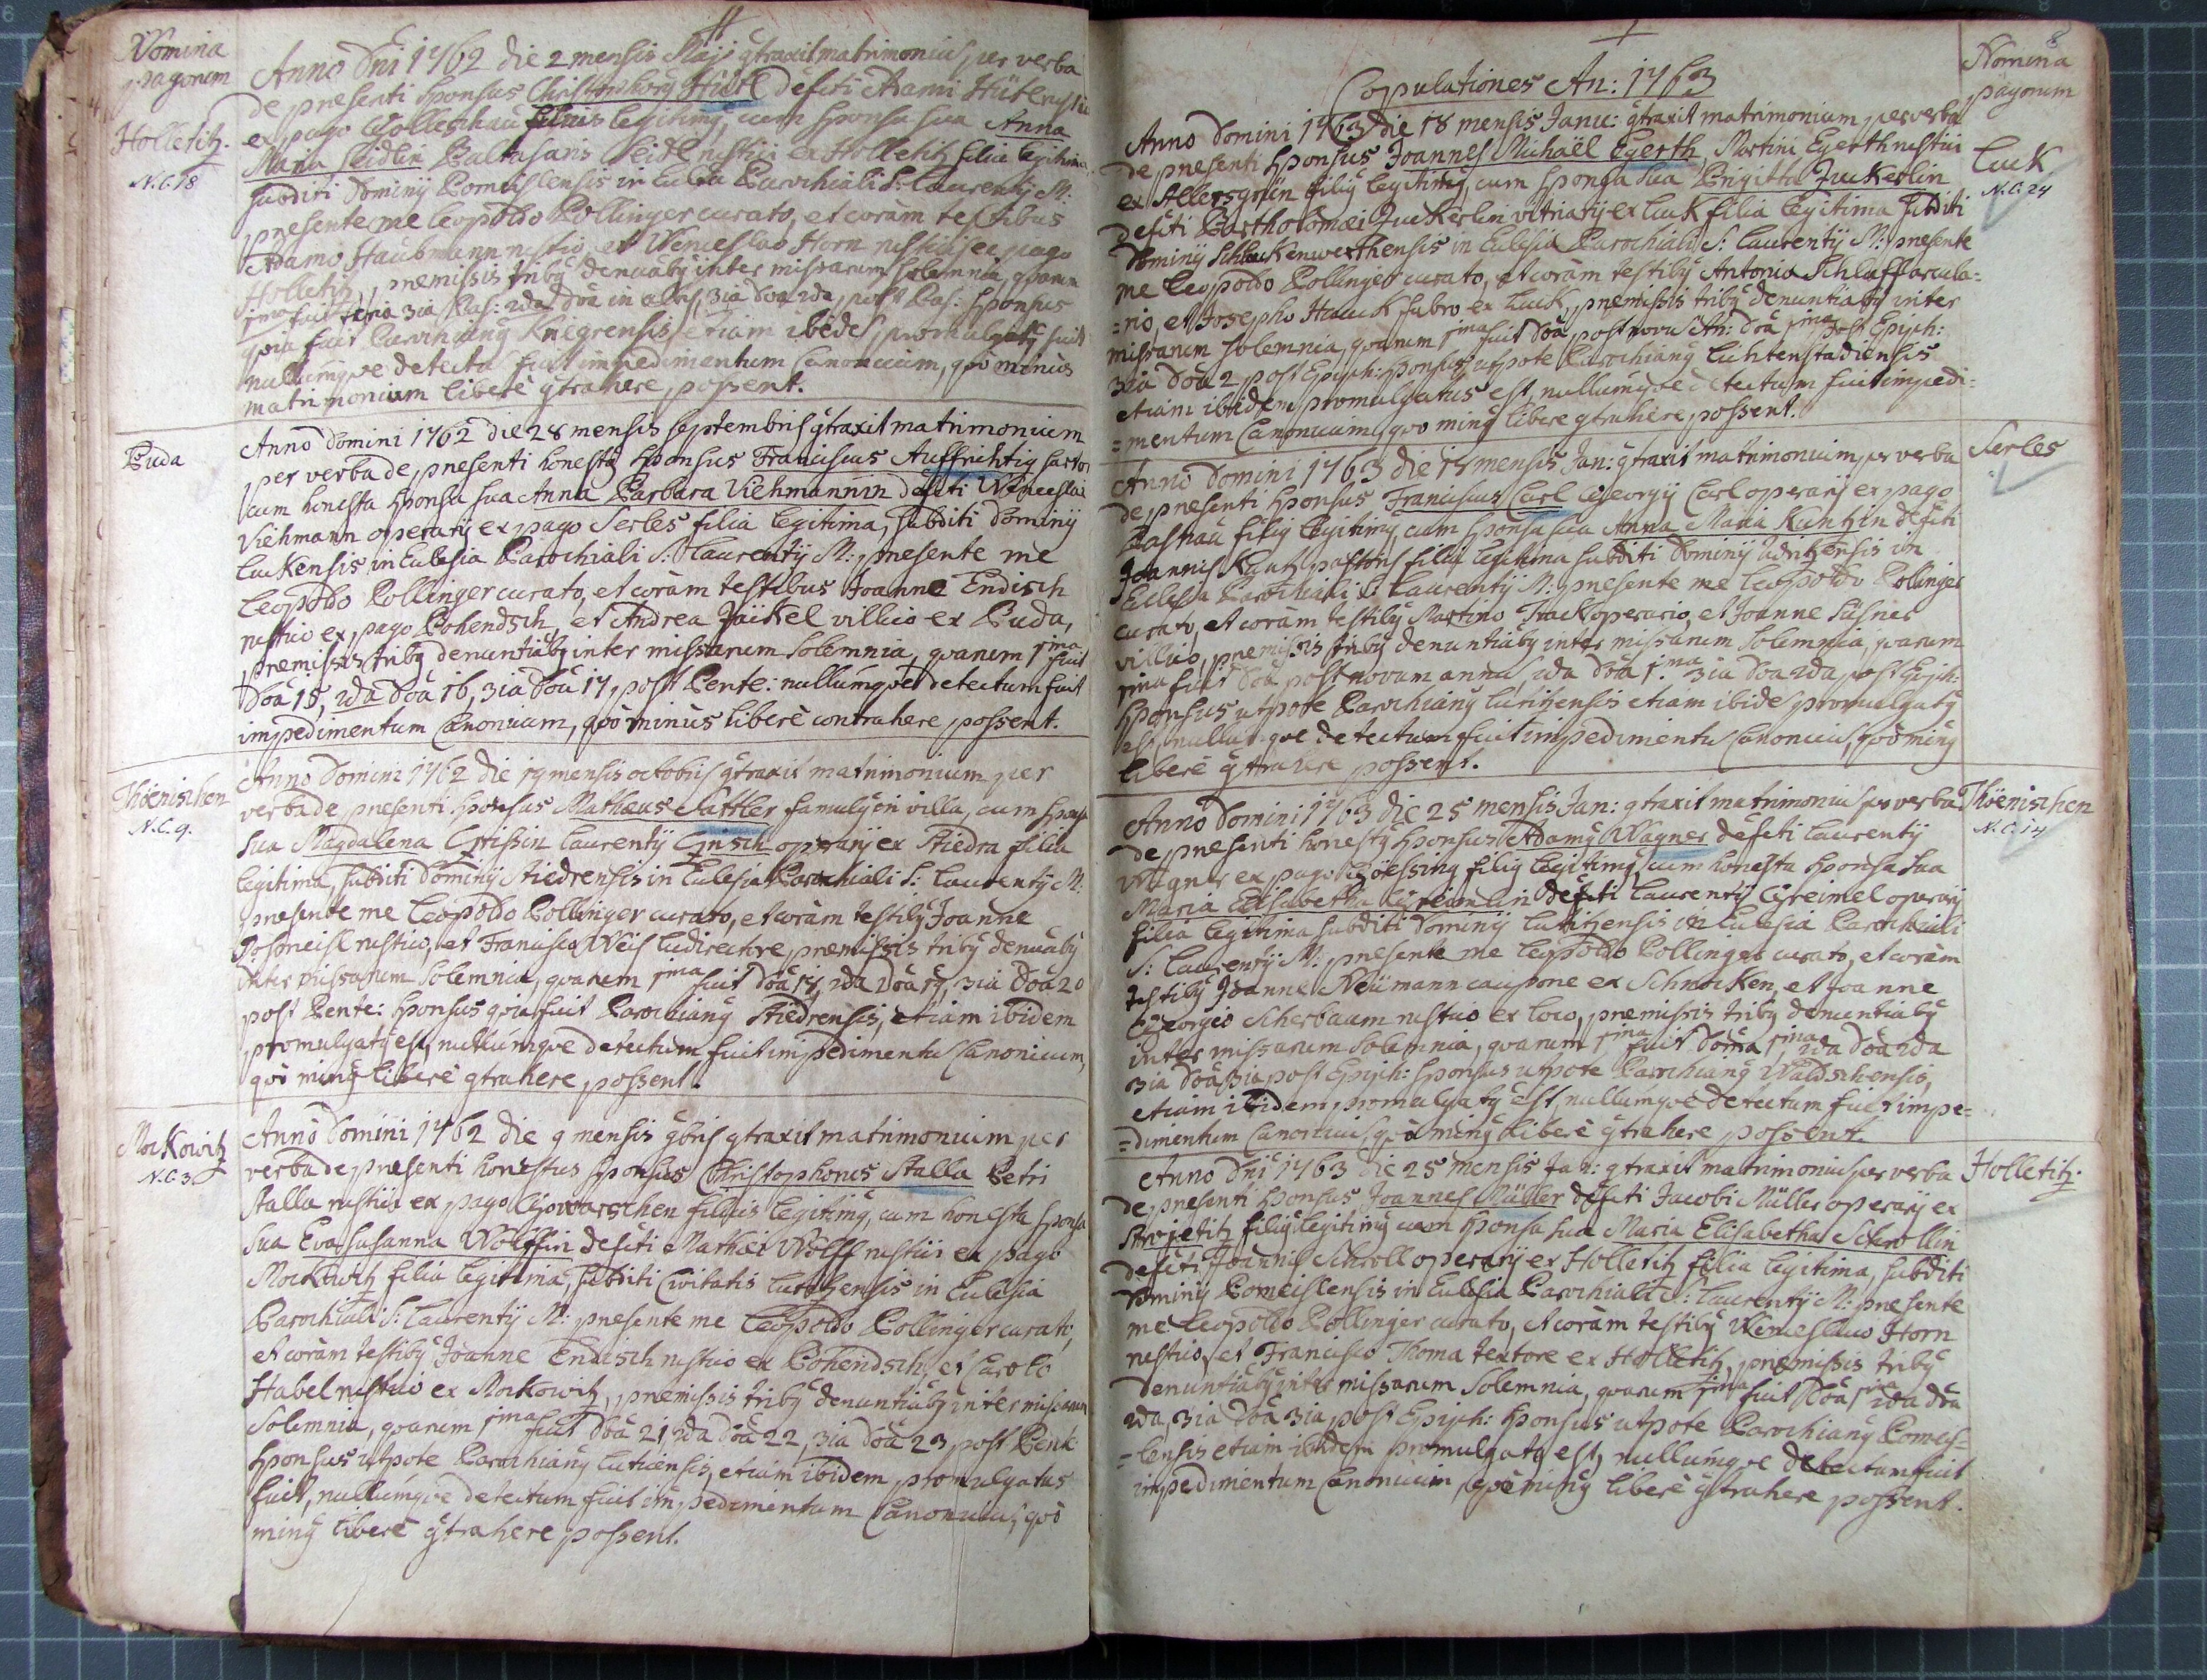 Nomina
pagorum
Holletitz.
N.C. 18
Anno Dni 1762 die 2 mensis Maji gtraxit matrimoniu per verba
de presenti Sponsus Hütl defcti Adami Hütl
ex pago Wolleschau filius legitimg, cum Sponsa sua Anna
Maria Seidlin Baltasaris Seidl rustici ex Holletitz filia legitima
subditi Dominij Pomeislensis in Eclesia Parochiali S: Laurentij M:
presente me Leopoldo Pollinger curato, et coràm testibus
Adamo Haubmann rustico, et Wenceslao Horn rustico ex pago
Holletitz, premissis tribg denuaбg inter missarum solemnia, quarum
1ma fuit feria 3ia Pas: 2da Doa in albis, 3ia Doa 2da post Pas: Sponsus
quia fuit Parochiang Kriegrensis etiam ibide promulgatg fuit
nullumqve detectu fuit impedimentum Canonicum, quo minus
matrimonium liberè gtrahere possent.
Puda
Anno Domini 1762 die 28 mensis Septembris gtraxit matrimonium
per verba de presenti honestg Sponsus Franciscus Auffrichtig sartor
cum honesta Sponsa sua Anna Barbara Viehmannin defcti Wenceslai
Viehmann operarij ex pago Serles filia legitima, subditi Dominij
Luckensis in Eclesia Parochiali S: Laurentij M: presente me
Leopoldo Pollinger curato, et coràm testibus Joanne Endisch
rustico ex pago Pohendsch, et Andrea Jäikel villico ex Puda,
premissis tribg denuntiaбg inter missarum Solemnia, quarum 1ma fuit
Doa 15, 2da Doa 16, 3ia Doa 17, post Pente: nullumqve detectum fuit
impedimentum Canonicum, quò minùs liberè contrahere possent.
Thöenischen
N.C. 9.
Anno Domini 1762 die 19 mensis octobris gtraxit matrimonium per
verba de presenti Sponsus Matheus Sattler famulg in villa, cum Sponsa
sua Magdalena Laurentij operarij ex Stiedra filia
legitima, subditi Dominij Stiedrensis in Eclesia Parochiali S: Laurentij M:
presente me Leopoldo Pollinger curato, et coràm testibg Joanne
rustico, et Francisco Weis ludirectore premissis tribg denuaбg
inter missarum Solemnia, quarum 1ma fuit Doa 18, 2da Doa 19, 3ia Doa 20
post Pente: Sponsus quia fuit Parochiang Stiedrensis, etiàm ibidem
promulgatg est, nullumqve detectum fuit impedimentu Canonicum,
quò ming liberè gtrahere possent.
Mockowitz
N.C. 3
Anno Domini 1762 die 9 mensis 9bris gtraxit matrimonium per
verba de presenti honestus Sponsus Christophorus Stalla Petri
Stalla rustici ex pago Gowarschen filius legitimg, cum honesta Sponsa
sua Eva Susanna Wolffin defcti Mathæi Wolff rustici ex pago
Mockowitz filia legitima, subditi Civitatis Luticensis in Eclesia
Parochiali S: Laurentij M: presente me Leopoldo Pollinger curato,
et coràm testibg Joanne Endisch rustico ex Pohendsch, et Carolo
Habel rustico ex Mockowitz, premissis tribg denuntiaбg inter missarum
Solemnia, quarum 1ma fuit Doa 21, 2da Doa 22, 3ia Doa 23 post Pent:
Sponsus utpote Parochiang Luticensis, etiam ibidem promulgatus
fuit, nullumqve detectum fuit impedimentum Canonicu, quò
ming liberè gtrahere possent.
8
Nomina
pagorum
Copulationes An: 1763
Luck
N.C. 24
Anno Domini 1763 die 18 mensis Janu: gtraxit matrimonium per verba
de presenti Sponsus Joannes Michaël Egerth, Martini Egerth rustici
ex Allersgrün filig legitimg, cum Sponsa sua Brigitta Juckerlin
defcti Bartholomæi Juckerlin vitriarij ex Luck filia legitima subditi
Dominij Schlackenwerthensis in Eclesia Parochiali S: Laurentij M: presente
me Leopoldo Pollinger curato, et coràm testibg Antonio Schlaff arcula=
=rio, et Josepho Hauck fabro ex Luck, premissis tribg denuntiaбg inter
missarum solemnia, quarum 1ma fuit Doa post novu An: Doa 1ma post Epiph:
3ia Doa 2 post Epiph: Sponsus utpote Parochiang Lichtenstadiensis
etiam ibidem promulgatus est, nullumqve detectum fuit impedi=
=mentum Canonicum, quo ming libere gtrahere possent.
Serles
Anno Domini 1763 die 18 mensis Jan: gtraxit matrimonium per verba
de presenti Sponsus Franciscus Carl Georgij Carl operarij ex pago
Paschau filig legitimg, cum Sponsa sua Anna Maria Kuntzin defcti
Joannis Kuntz pastoris filia legitima subditi Dominij Udritzensis in
Eclesia Parochiali S: Laurentij M: presente me Leopoldo Pollinger
curato, et coràm testibg Martino Track operario, et Joanne Süsner
villico, premissis tribg denuntiaбg inter missarum Solemnia, quarum
1ma fuit Doa post novum annu, 2da Doa 1ma 3ia Doa 2da post Epiph:
Sponsus utpote Parochiang Lutitzensis etiam ibide promulgatg
est, nullumqve detectum fuit impedimentu Canonicu, quò ming
liberè gtrahere possent.
Thöenischen
N.C. 14
Anno Domini 1763 die 25 mensis Jan: gtraxit matrimoniu per verba
de presenti honestg Sponsus Adamg Wagner defcti Laurentij
Wagner ex pago Göessing filig legitimg, cum honesta Sponsa sua
Maria Elisabetha Greimlin defcti Laurentij Greimel operarij
filia legitima subditi Dominij Lutitzensis in Eclesia Parochiali
S: Laurentij M: presente me Leopoldo Pollinger curato, et coràm
testibg Joanne Neümann caupone ex Schnocken, et Joanne
Georgio Scherbaum rustico ex loco, premissis tribg denuntiaбg
inter missarum Solemnia, quarum 1ma fuit Doma 1ma, 2da Doa 2da
3ia Doa 3ia post Epiph: Sponsus utpote Parochiang Waldschensis,
etiàm ibidem promulgatg est, nullumqve detectum fuit impe=
=dimentum Canonicu, quò ming liberè gtrahere possent.
Holletitz.
Anno Dni 1763 die 25 mensis Jan: gtraxit matrimoniu per verba
de presenti Sponsus Joannes Müller defcti Jacobi Müller operarij ex
Strojetitz filig legitimg cum Sponsa sua Maria Elisabetha Schrollin
defcti Joannis Schroll operarij ex Holletitz filia legitima, subditi
Dominij Pomeislensis in Eclesia Parochiali S: Laurentij M: presente
me Leopoldo Pollinger curato, et coràm testibg Wenceslao Horn
rustico, et Francisco Thoma textore ex Holletitz, premissis tribg
denuntiaбg inter missarum Solemnia, quarum 1ma fuit Doa 1ma 2da Doa
2da, 3ia Doa 3ia post Epiph: Sponsus utpote Parochiang Pomeis=
=lensis etiam ibidem promulgatg est, nullumqve detectum fuit
impedimentum Canonicum, quò ming liberè gtrahere possent.